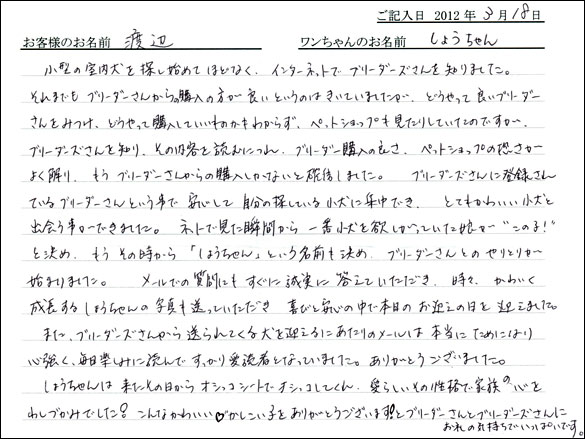 ご記入日 2012 年 3 月 18 日
お客様のお名前 渡辺 ワンちゃんのお名前 しょうちゃん
小型の室内犬を探し始めてほどなく、インターネットでブリーダーズさんを知りました。
それまでも ブリーダーさんからの購入の方が良いというのはきいていましたが、どうやって良いブリーダー
さんをみつけ、どうやって購入していいものかもわからず、ペットショップも見たりしていたのですが、
ブリーダーズさんを知り、その内容を読むにつれ、ブリーダー購入の良さ、ペットショップの恐さが
よく解り、もうブリーダーさんからの購入しかないと確信しました。 ブリーダーズさんに登録され
ているブリーダーさんという事で安心して自分の探している小犬に集中でき、とてもかわいい小犬と
出会う事ができました。 ネットで見た瞬間から一番小犬を欲しがっていた娘が“この子!”
と決め、もうその時から「しょうちゃん」という名前も決め、ブリーダーさんとのやりとりが
始まりました。 メールでの質問にもすぐに誠実に答えていただき、時々、かわいく
成長するしょうちゃんの写真も送っていただき 喜びと安心の中で本日のお迎えの日を迎えました。
また、ブリーダーズさんから送られてくる犬を迎えるにあたりのメールは本当にためになり
心強く、毎日楽しみに読んですっかり愛読者となっていました。ありがとうございました。
しょうちゃんは来たその日からオシッコシートでオシッコしてくれ、愛らしいその性格で家族の心を
わしづかみでした? こんなかわいい♡がしこい子をありがとうございます!とブリーダーさんとブリーダーズさんに
お礼の気持ちでいっぱいです。